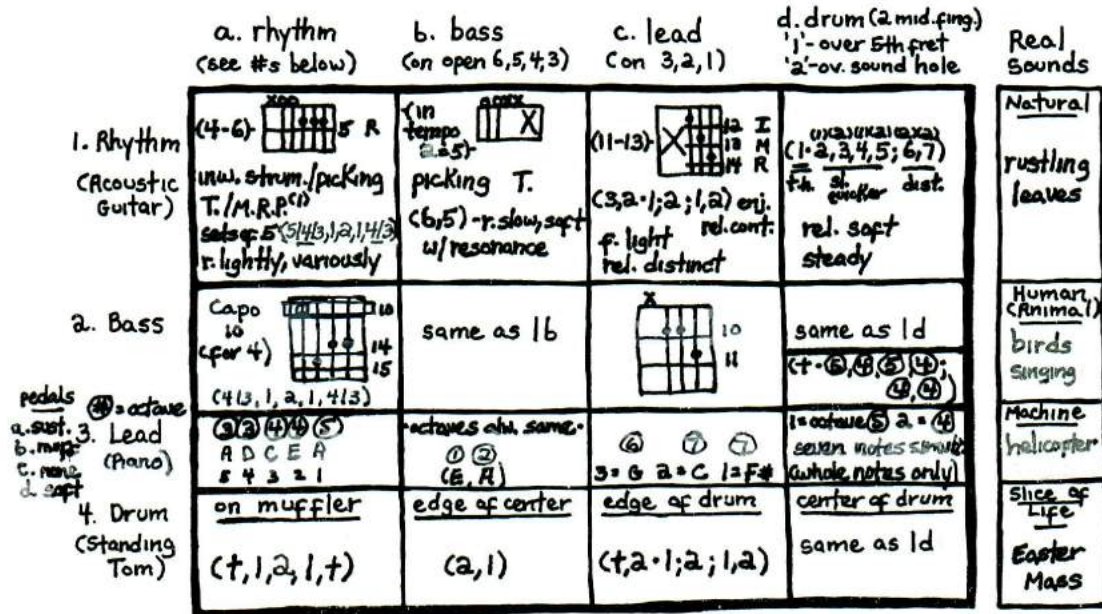 a. rhythm
(see #s below)
b. bass
(on open 6,5,4,3)
c. lead
(on 3,2,1)
d. drum (2 mid. fing.)
'1'-over 5th fret
'2'-ov. sound hole
Real
Sounds
1. Rhythm
(Acoustic
Guitar)
xoo
(4-6)
5 R
inw. strum./picking
T./M.R.P.(1)
sets of 5 (5|4|3,1,2,1,4|3)
r. lightly, variously
(in
tempo
2=5)
X
picking T.
(6,5)-r. slow, soft
w/resonance
(11-13)
X
12 I
13 M
14 R
(3,2·1;2;1,2) enj.
rel. cont.
f. light
rel. distinct
(1·2,3,4,5;6,7)
sl.
quicker
dist.
rel. soft
steady
Natural
rustling
leaves
2. Bass
Capo
10
(for 4)
10
14
15
(4|3, 1, 2, 1, 4|3)
same as 1b
x
10
11
same as 1d
(t·6,4,5,4;
4,4)
Human,
(Animal)
birds
singing
pedals
a. sust.
b. muff.
c. none
d. soft
#=octave
3. Lead
(Piano)
3 3 4 4 5
A D C E A
5 4 3 2 1
·octaves alw. same·
1 2
(E, A)
6 7 7
3=G 2=C 1=F#
1=octave 5 2=4
seven notes
(whole notes only)
Machine
helicopter
4. Drum
(Standing
Tom)
on muffler
(t,1,2,1,t)
edge of center
(2,1)
edge of drum
(t,2·1;2;1,2)
center of drum
same as 1d
Slice of
Life
Easter
Mass